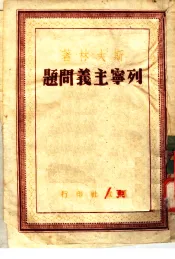 斯大林著
列寧主義問題
社印行